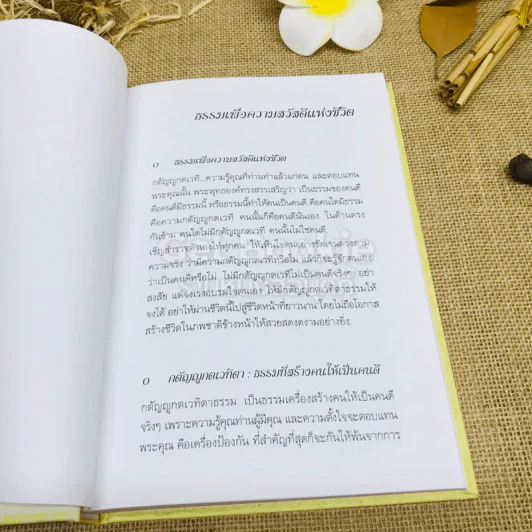 ธรรมเพื่อความสวัสดีแห่งชีวิต
๐ ธรรมเพื่อความสวัสดีแห่งชีวิต
กตัญญูกตเวที...ความรู้คุณที่ท่านทำแล้วแก่ตน และตอบแทน
พระคุณนั้น พระพุทธองค์ทรงสรรเสริญว่า เป็นธรรมของคนดี
คือคนดีมีธรรมนี้ หรือธรรมนี้ทำให้คนเป็นคนดี คือคนใดมีธรรม
คือความกตัญญูกตเวที คนนั้นก็คือคนดีนั่นเอง ในด้านตรง
กันข้าม คนใดไม่มีกตัญญูกตเวที คนนั้นไม่ใช่คนดี
เชิญสำรวจตัวเองให้ทุกคน ให้เห็นในตนอย่างชัดเจนตรงตาม
ความจริง ว่ามีความกตัญญูกตเวทีหรือไม่ แล้วก็จะรู้จักตนเอง
ว่าเป็นคนดีหรือไม่ ไม่มีกตัญญูกตเวทีไม่เป็นคนดีจริงๆ อย่า
สงสัย แต่จงเร่งอบรมใจตนเอง ให้มีกตัญญูกตเวทิตาธรรมให้
จงได้ อย่าให้ผ่านชีวิตนี้ไปสู่ชีวิตหน้าที่ยาวนาน โดยไม่ถือโอกาส
สร้างชีวิตในภพชาติข้างหน้าให้สวยสดงดงามอย่างยิ่ง.
๐ กตัญญูกตเวทิตา : ธรรมที่สร้างคนให้เป็นคนดี
กตัญญูกตเวทิตาธรรม เป็นธรรมเครื่องสร้างคนให้เป็นคนดี
จริงๆ เพราะความรู้คุณท่านผู้มีคุณ และความตั้งใจจะตอบแทน
พระคุณ คือเครื่องป้องกัน ที่สำคัญที่สุดก็จะกันให้พ้นจากการ